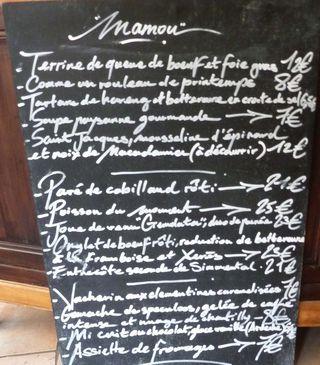 "Mamou"
- Terrine de queue de boeuf et foie gras 12€
Comme un rouleau de printemps 8€
- Tartare de hareng et betterave en croute de sel
- Soupe paysanne gourmande → 7€
- Saint Jacques, mousseline d'épinard
et noix de Macadamia (à découvrir) 12€
- Pavé de cabillaud rôti → 21€
- Poisson du moment → 25€
- Joue de veau duo de purée
Onglet de boeuf rôti, reduction de betterave
à la Framboise et Xérès →
- Entrecôte seconde de Simmental. 21€
- Vacherin aux clementines caramelisées 7€
Ganache de speculoos, gelée de café
intense et nuage de chantilly 8€
- Mi cuit au chocolat,
- Assiette de fromages → 7€